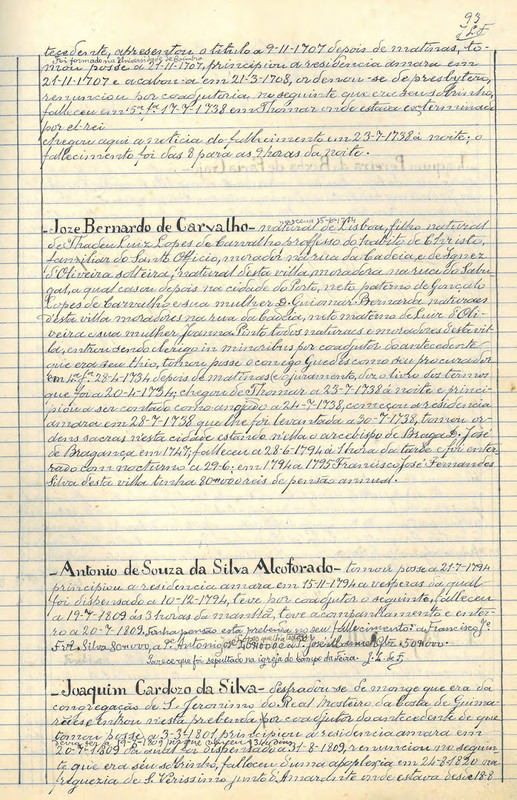 93
J.L.F.
tecedente, apresentou o titulo a 9-11-1707 depois de matinas, to-
Foi formado na Universidade de Coimbra
mou posse a 21-11-1707, principiou a residencia amara em
21-11-1707 e acabou-a em 21-3-1708, ordenou-se de presbytero,
renunciou por coadjutoria no seguinte que era seu sobrinho,
falleceu em 5ª frª 17-7-1738 em Thomar onde estava exterminado
por el-rei
chegou aqui a noticia do fallecimento em 23-7-1738 á noite; o
fallecimento foi das 8 para as 9 horas da noite.
nasceu 15-6-1714
- Joze Bernardo de Carvalho - natural de Lisboa, filho natural
de Thadeu Luiz Lopes de Carvalho professo do habito de Christo,
familiar do Santo Officio, morador na rua da Cadeia, e de Ignez
d'Oliveira solteira, natural desta villa, moradora na rua do Sabu-
gal, a qual casou depois na cidade do Porto, neto paterno de Gonçalo
Lopes de Carvalho e sua mulher D. Guiomar Bernarda naturaes
desta villa moradores na rua da Cadeia, neto materno de Luiz d'Oli-
veira e sua mulher Joanna Pinto todos naturaes e moradores desta vil-
la, entrou sendo clerigo in minoribus por coadjutor do antecedente
que era seu thio, tomou posse o conego Guedes como seu procurador
em 4ª frª 28-4-1734 depois de matinas e o juramento, diz o livro dos termos
que foi a 20-4-1734, chegou de Thomar a 23-7-1738 á noite e princi-
piou a ser contado como anojado a 24-7-1738, começou a residencia
amara em 28-7-1738 que lhe foi levantada a 30-7-1738, tomou or-
dens sacras nesta cidade estando nella o arcebispo de Braga D. José
de Bragança em 1747, falleceu a 28-6-1794 á 1 hora da tarde e foi enter-
rado com nocturno a 29-6; em 1794 a 1795 Francisco José Fernandes
Silva desta villa tinha 80#000 reis de pensão annual.
- Antonio de Souza da Silva Alcoforado - tomou posse a 21-7-1794
principiou a residencia amara em 15-11-1794 a vesperas da qual
foi dispensado a 10-12-1794, teve por coadjutor o seguinte, falleceu
a 19-7-1809 ás 3 horas da manhã, teve acompanhamento e enter-
ro a 20-7-1809. Tinha pensão esta prebenda no seu fallecimento: a Francisco Jé
Frz. Silva 80#000, a Pe. Antonio 40#000 a Pe. José 50#000.
Parece que foi sepultado na igreja do Campo da Feira. J.L.F.
- Joaquim Cardozo da Silva - desfradou-se de monge que era da
congregação de S. Jeronimo do Real Mosteiro da Costa de Guima-
rães e entrou nesta prebenda por coadjutor do antecedente de que
tomou posse a 3-3-1801 principiou a residencia amara em
20-7-1809 da qual foi dispensado a 31-8-1809, renunciou no seguin-
te, que era seu sobrinho, falleceu d'uma apoplexia em 24-8-1820 na
freguezia de S. Verissimo junto d'Amarante onde estava desde 18-8